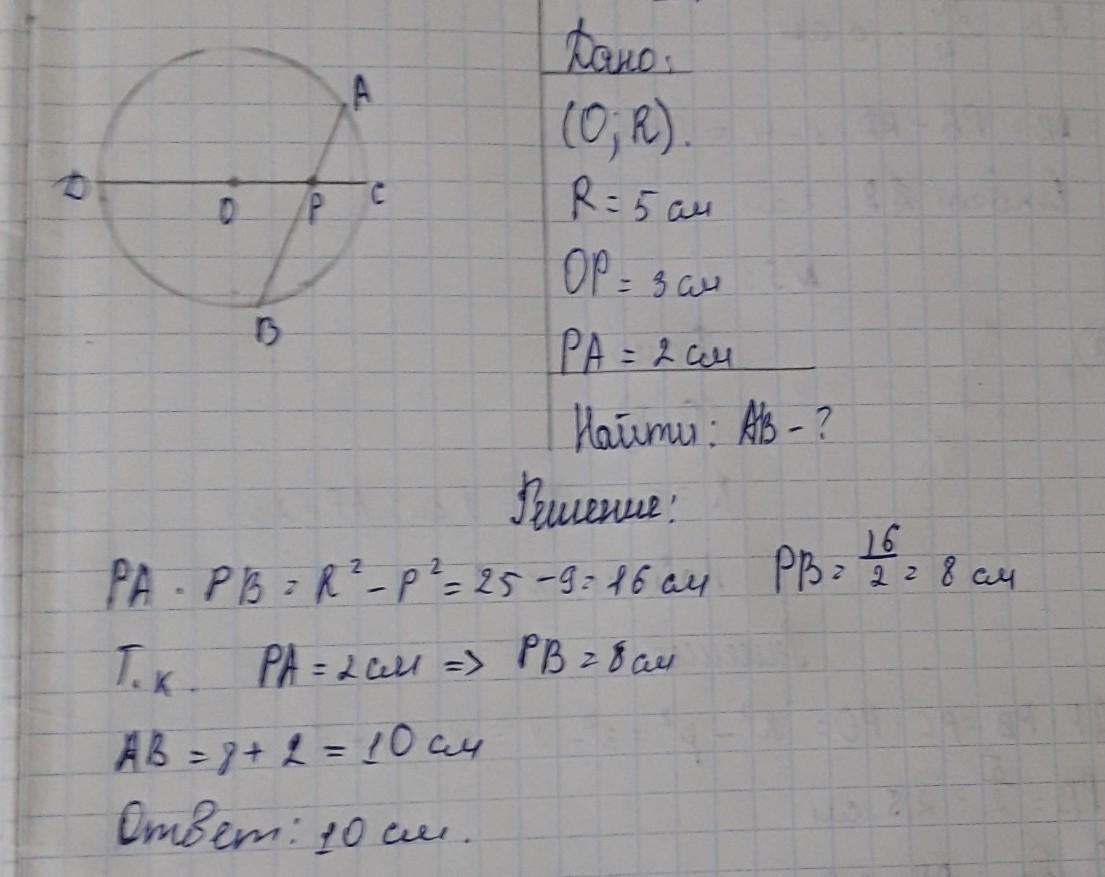 A
D O P C
B
Дано:
(O; R).
R = 5 см
OP = 3 см
PA = 2 см
Найти: AB - ?
Решение:
PA · PB = R² - P² = 25 - 9 = 16 см PB = 16/2 = 8 см
Т.к. PA = 2 см => PB = 8 см
AB = 8 + 2 = 10 см
Ответ: 10 см.